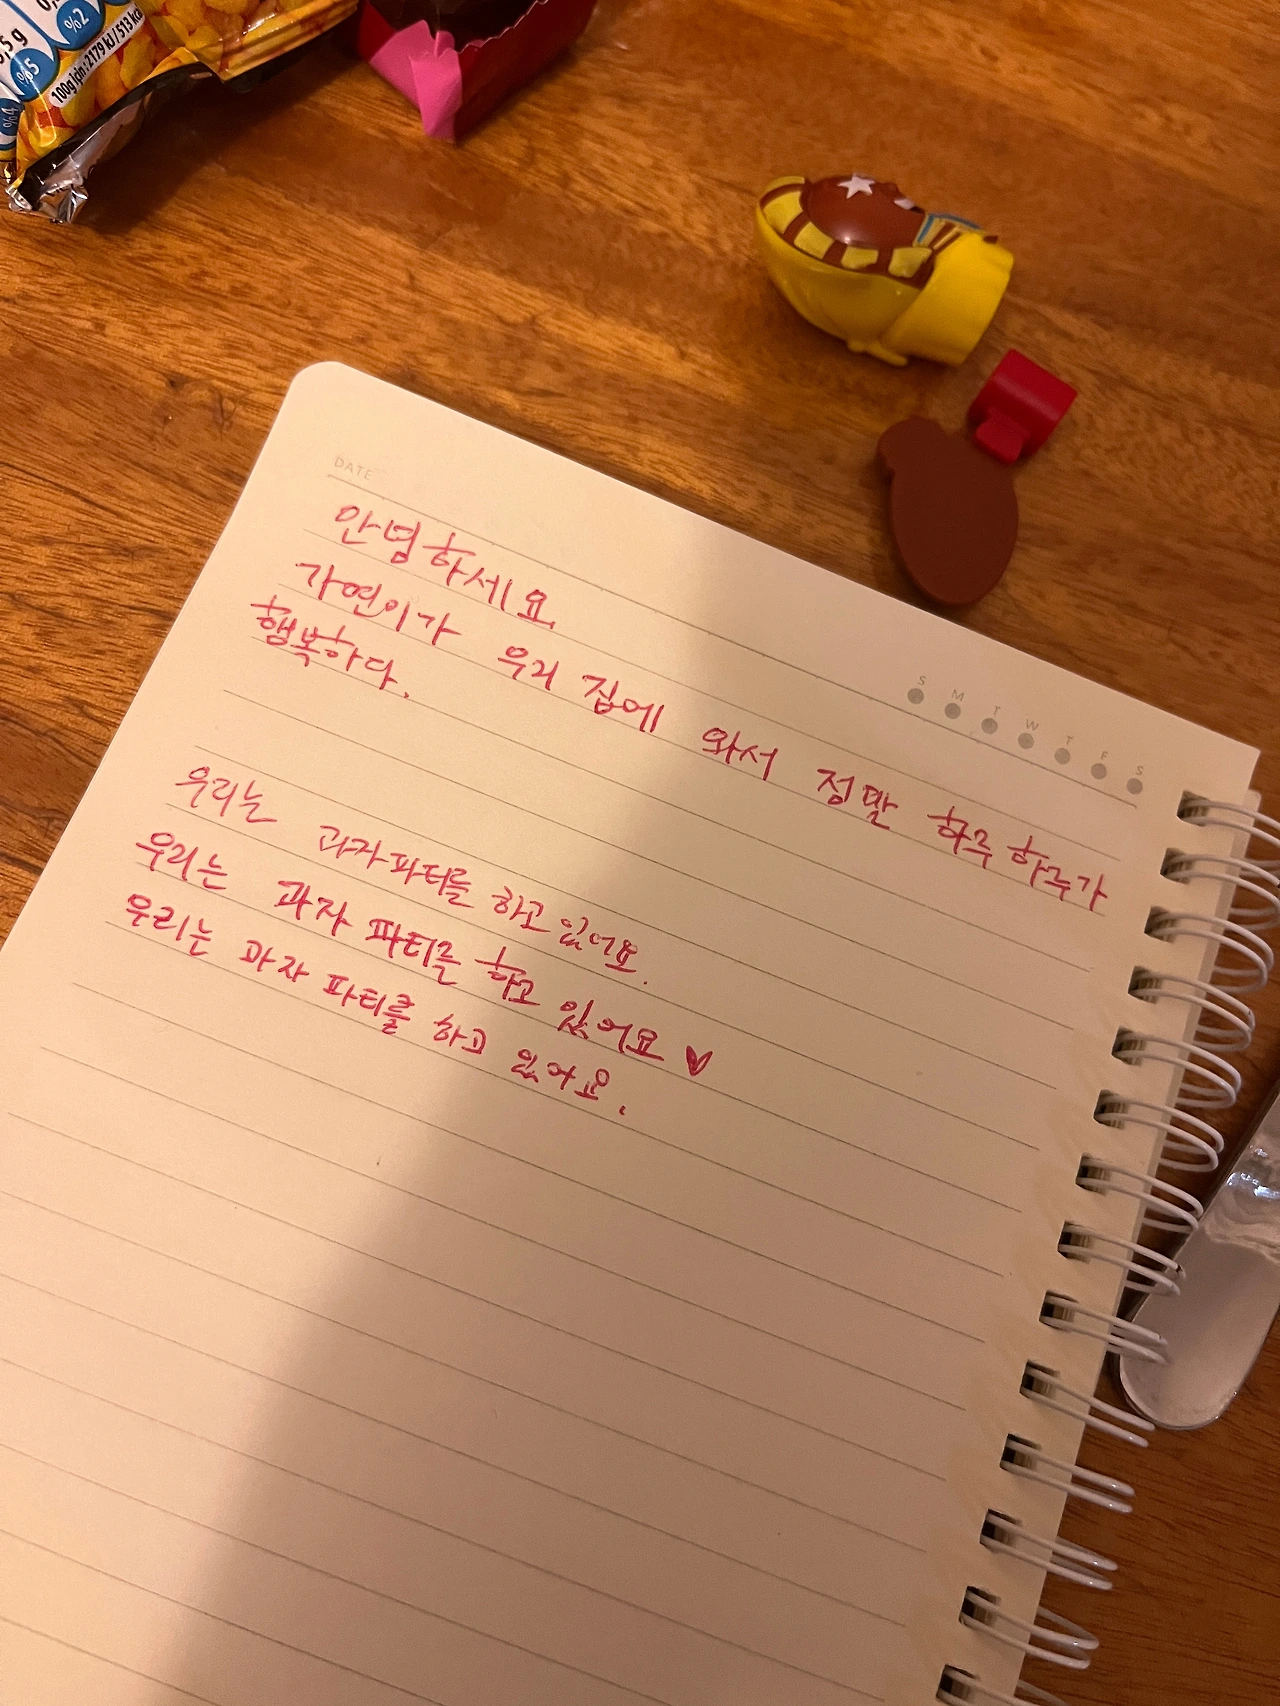 %5
%2
100g için: 2179 kJ / 513 kc
DATE
S M T W T F S
안녕하세요.
가연이가 우리 집에 와서 정말 하루하루가
행복하다.
우리는 과자파티를 하고있어요.
우리는 과자 파티를 하고 있어요♥
우리는 과자 파티를 하고 있어요.